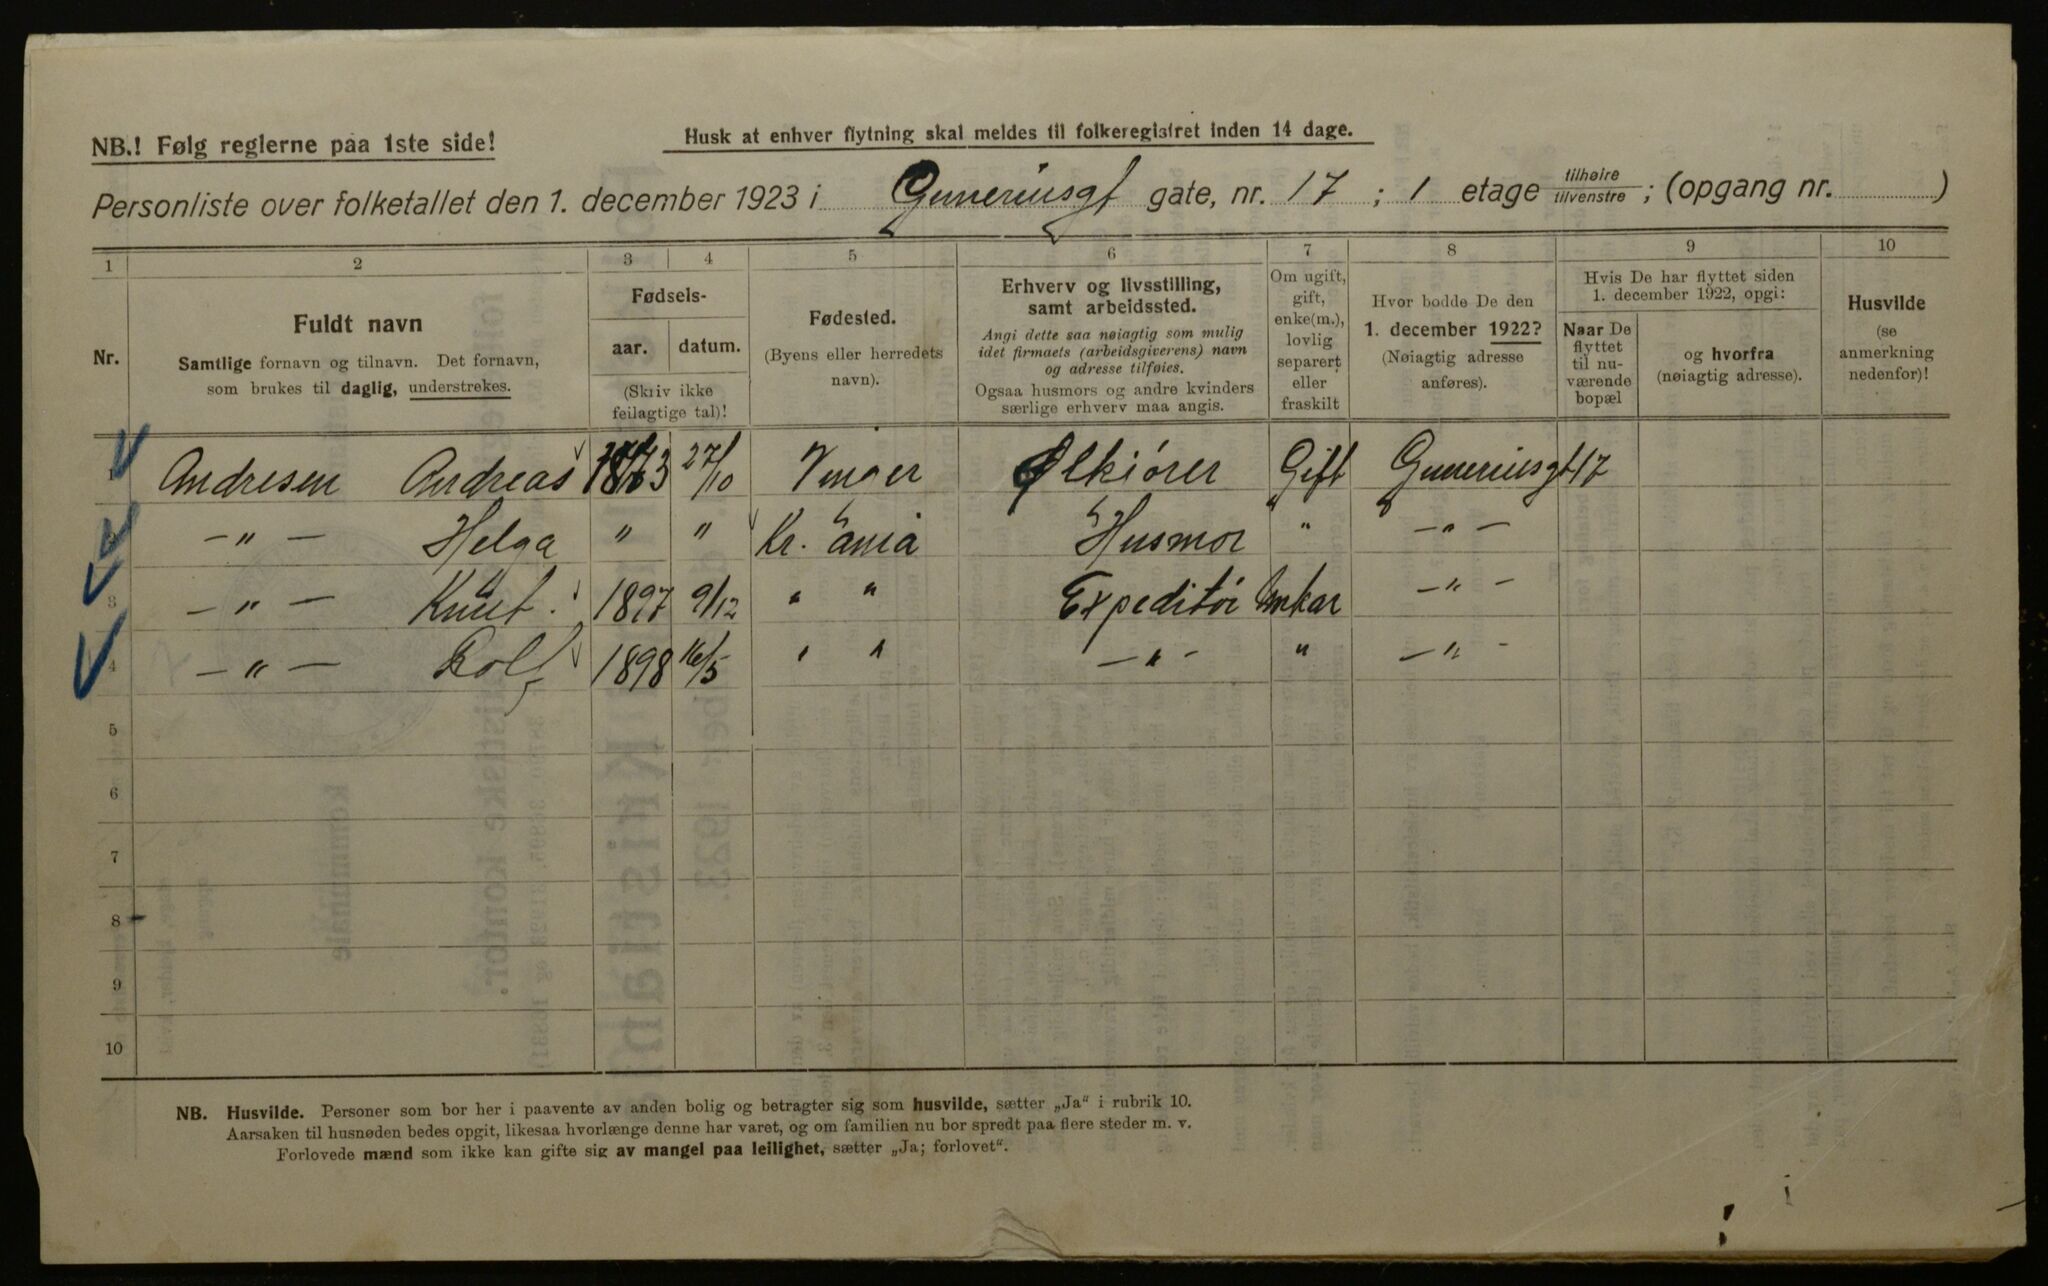 NB.! Følg reglerne paa 1ste side!
Husk at enhver flytning skal meldes til folkeregistret inden 14 dage.
Personliste over folketallet den 1. december 1923 i Gunneriusgt gate, nr. 17 ; 1 etage tilhøire/tilvenstre ; (opgang nr. )
1 2 3 4 5 6 7 8 9 10
Nr.
Fuldt navn
Samtlige fornavn og tilnavn. Det fornavn,
som brukes til daglig, understrekes.
Fødsels-
aar. datum.
(Skriv ikke
feilagtige tal)!
Fødested.
(Byens eller herredets
navn).
Erhverv og livsstilling,
samt arbeidssted.
Angi dette saa nøiagtig som mulig
idet firmaets (arbeidsgiverens) navn
og adresse tilføies.
Ogsaa husmors og andre kvinders
særlige erhverv maa angis.
Om ugift,
gift,
enke(m.),
lovlig
separert
eller
fraskilt
Hvor bodde De den
1. december 1922?
(Nøiagtig adresse
anføres).
Hvis De har flyttet siden
1. december 1922, opgi:
Naar De
flyttet
til nu-
værende
bopæl
og hvorfra
(nøiagtig adresse).
Husvilde
(se
anmerkning
nedenfor)!
1 Andresen Andreas 1873 27/10 Vinger Ølkjører Gift Gunneriusgt 17
2 –"– Helga " " Kr.ania Husmor " –"–
3 –"– Knut 1897 9/12 " " Expeditør Unkar –"–
4 –"– Rolf 1898 16/5 " " –"– " –"–
5
6
7
8
9
10
NB. Husvilde. Personer som bor her i paavente av anden bolig og betragter sig som husvilde, sætter „Ja" i rubrik 10.
Aarsaken til husnøden bedes opgit, likesaa hvorlænge denne har varet, og om familien nu bor spredt paa flere steder m. v.
Forlovede mænd som ikke kan gifte sig av mangel paa leilighet, sætter „Ja; forlovet".